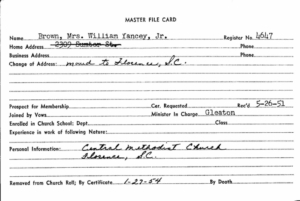 MASTER FILE CARD
Name Brown, Mrs. William Yancey, Jr. Register No. 4647
Home Address 2909 Sumter St. Phone
Business Address Phone
Change of Address: moved to Florence, S.C.
Prospect for Membership Car. Requested Rec'd 5-26-51
Joined by Vows Minister In Charge Gleaton
Enrolled in Church School: Dept. Class
Experience in work of following Nature:
Personal Information: Central Methodist Church
Florence, S.C.
Removed from Church Roll; By Certificate 1-27-54 By Death